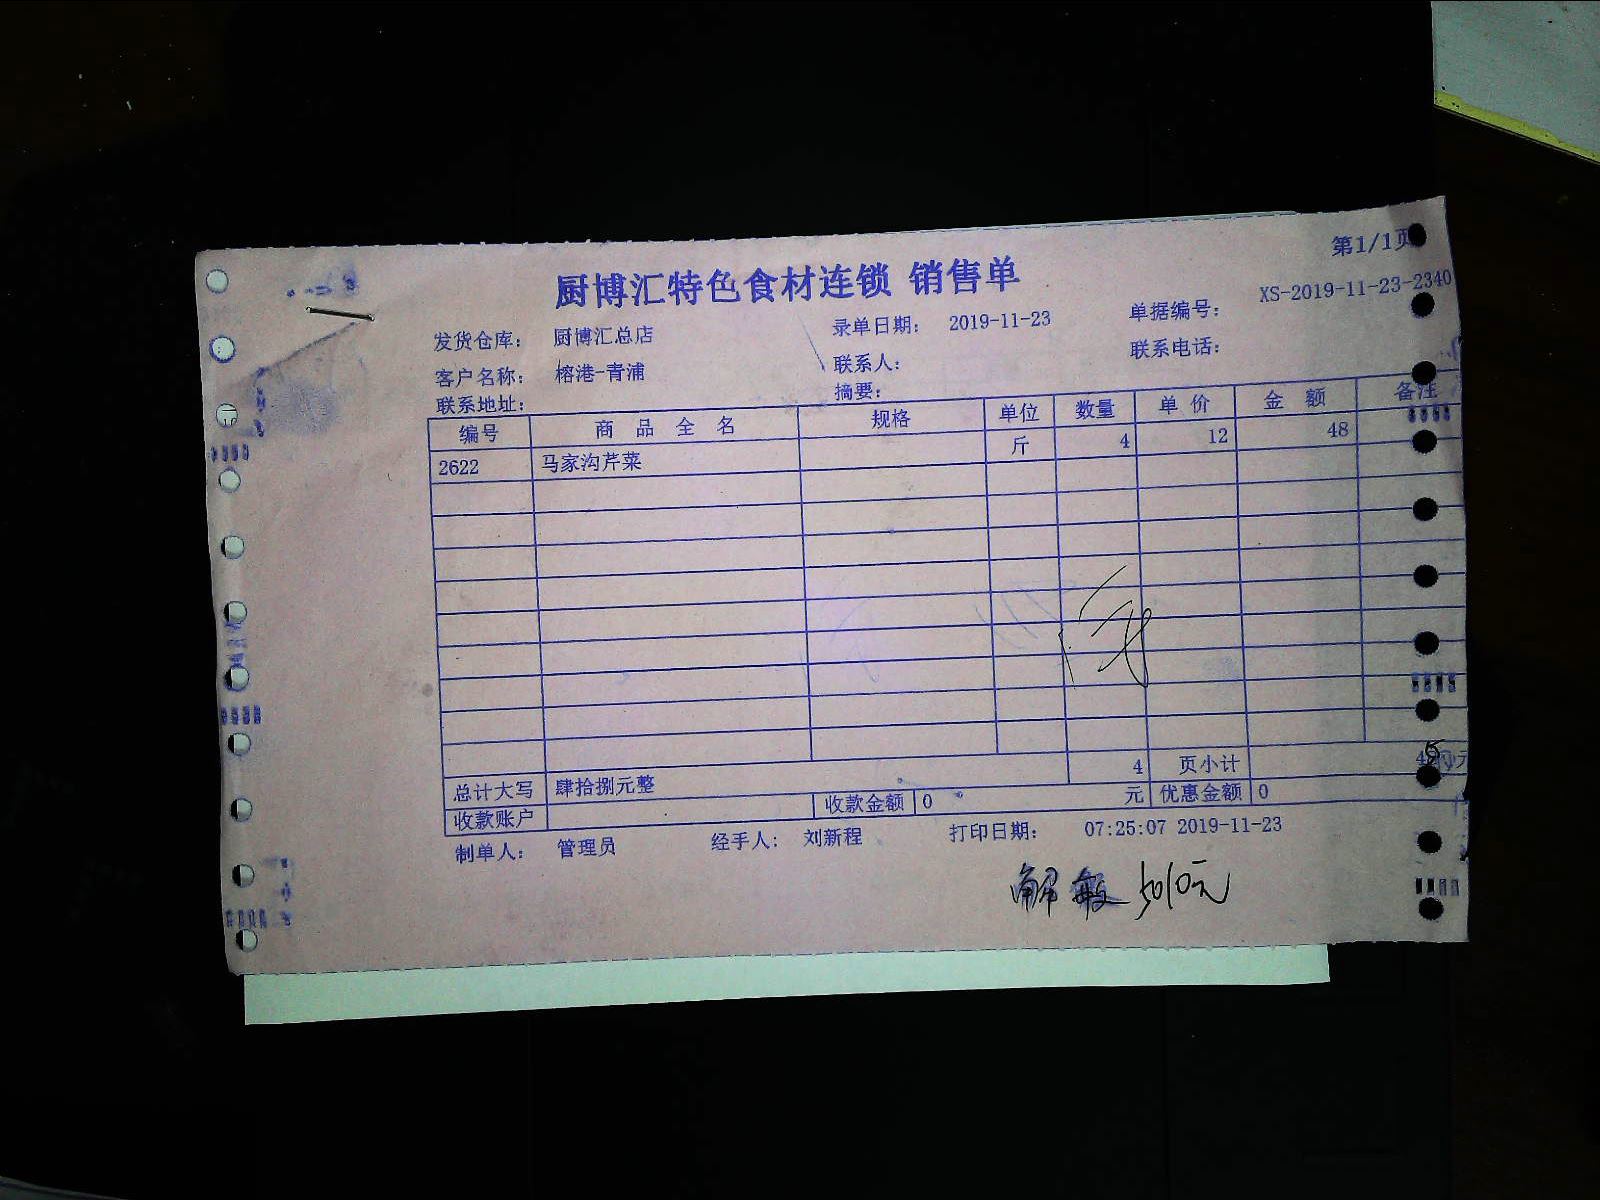 第1/1页
厨博汇特色食材连锁 销售单
XS-2019-11-23-2340
发货仓库： 厨博汇总店 录单日期： 2019-11-23 单据编号：
客户名称： 榕港-青浦 联系人： 联系电话：
联系地址： 摘要：
编号 商品全名 规格 单位 数量 单价 金额 备注
2622 马家沟芹菜 斤 4 12 48
总计大写 肆拾捌元整 4 页小计
收款账户 收款金额 0 元 优惠金额 0
制单人： 管理员 经手人： 刘新程 打印日期： 07:25:07 2019-11-23